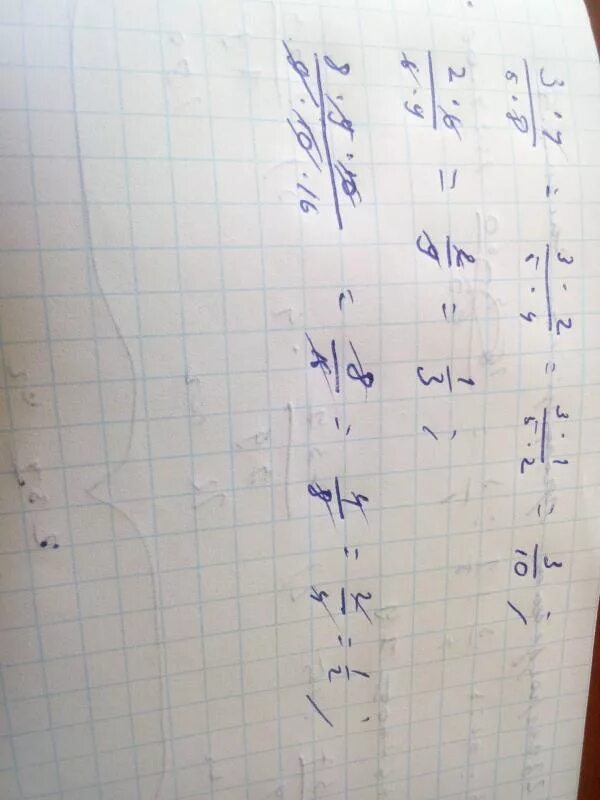 3·4/5·8 = 3·2/5·4 = 3·1/5·2 = 3/10 ;
2·6/6·9 = 2/9 = 1/3 ;
8·9·10/9·10·16 = 8/16 = 4/8 = 2/4 = 1/2 ;